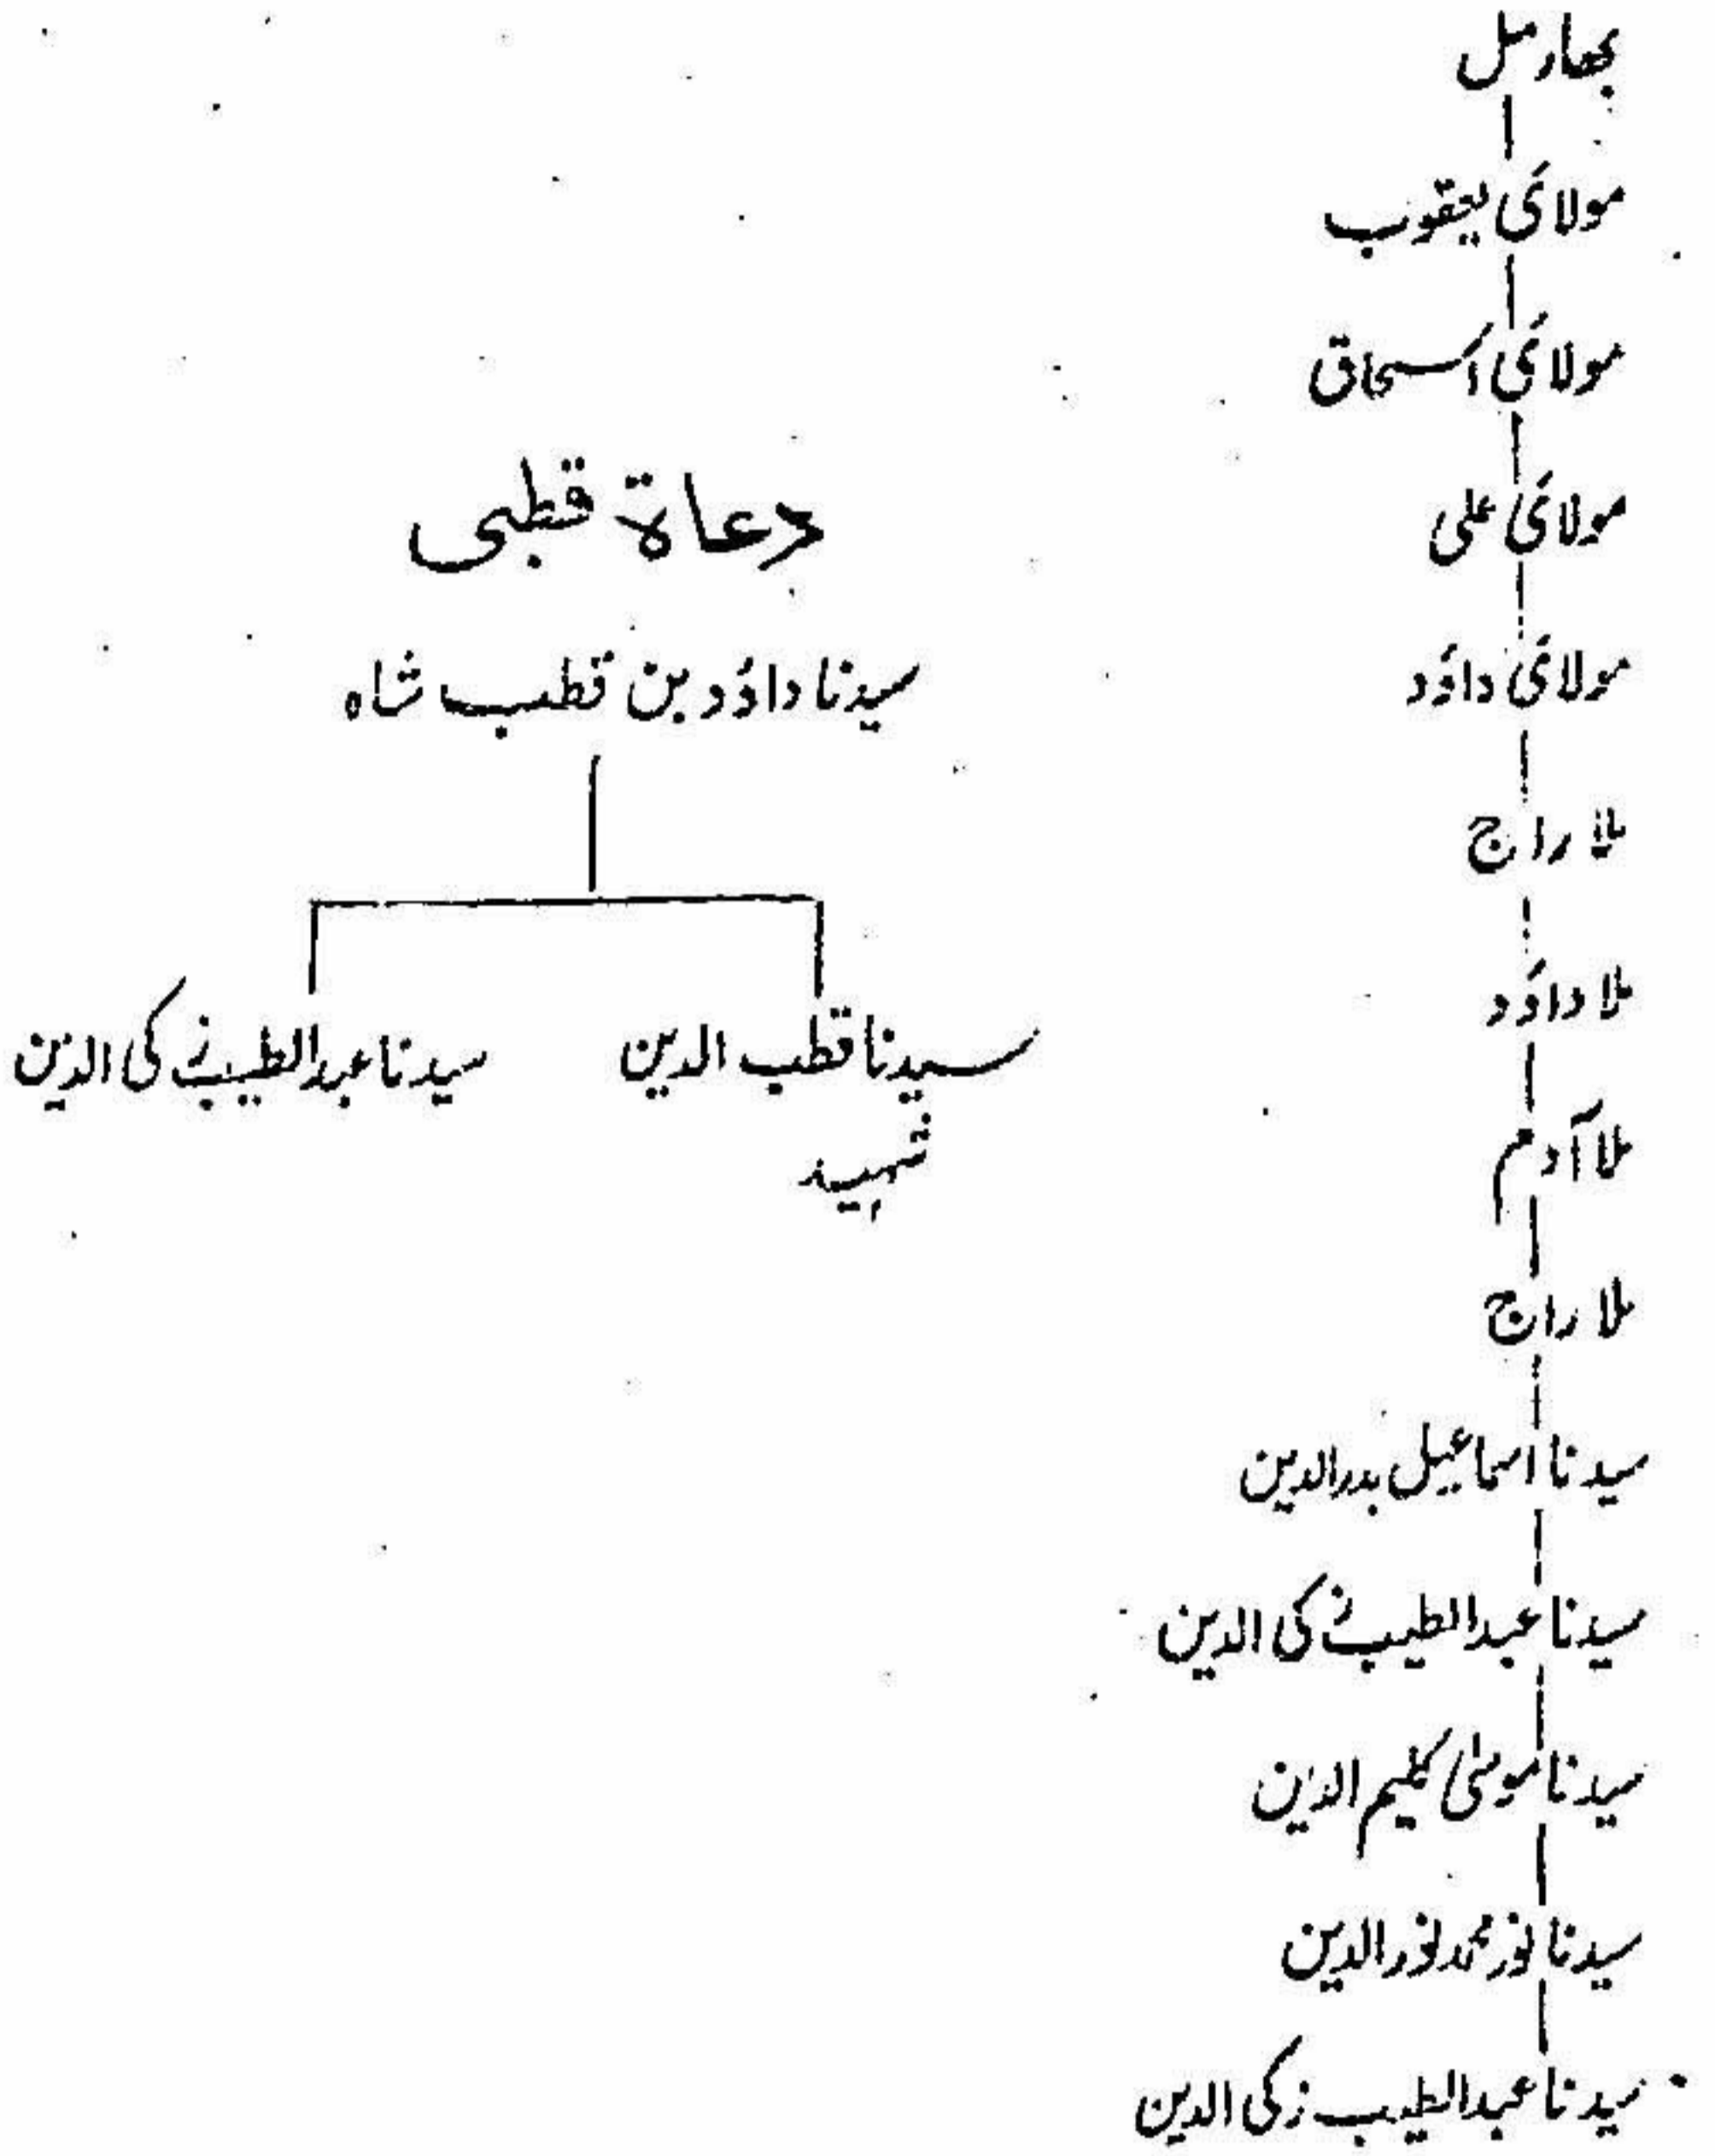 بھارمل
مولائی یعقوب
مولائی اسحاق
مولائی علی
مولائی داؤد
ملا راج
ملا داؤد
ملا آدم
ملا راج
سیدنا اسماعیل بدرالدین
سیدنا عبدالطیب زکی الدین
سیدنا موسیٰ کلیم الدین
سیدنا نور محمد نورالدین
سیدنا عبدالطیب زکی الدین
دعاة قطبی
سیدنا داؤد بن قطب شاہ
سیدنا قطب الدین
شہید
سیدنا عبدالطیب زکی الدین